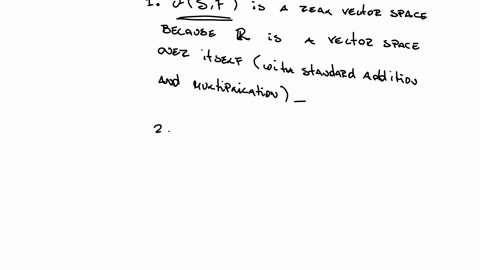 1. F(S,F) IS A REAL VECTOR SPACE
BECAUSE ℝ IS A VECTOR SPACE
OVER ITSELF (WITH STANDARD ADDITION
AND MULTIPLICATION)_
2.